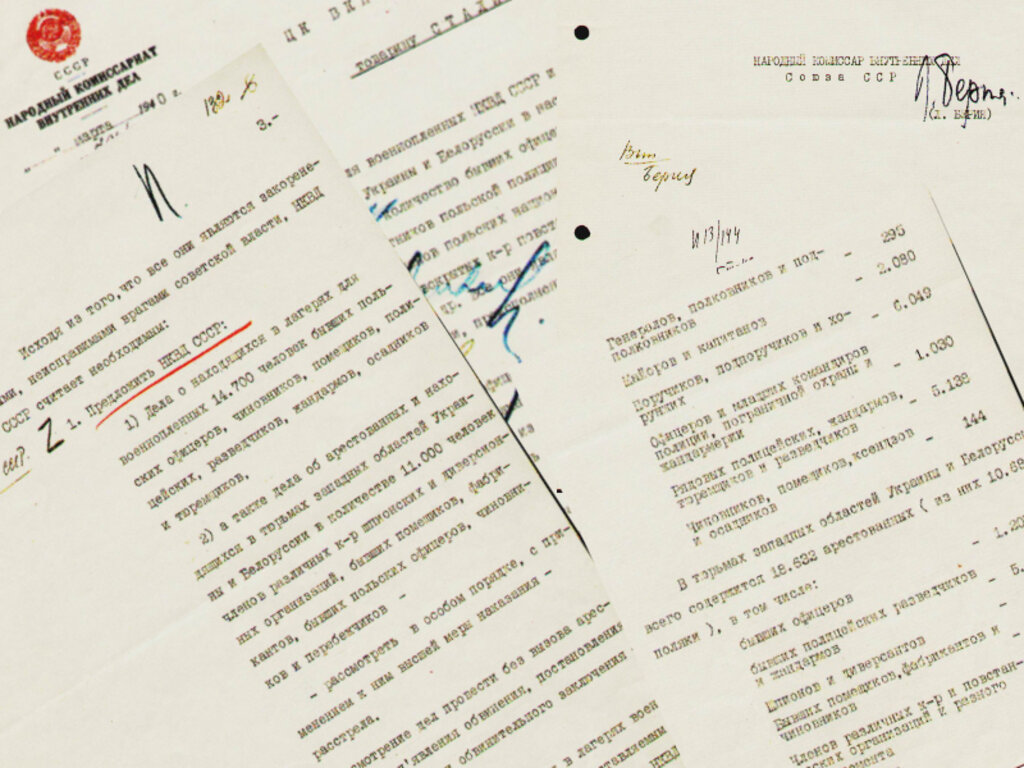 СССР
НАРОДНЫЙ КОМИССАРИАТ
ВНУТРЕННИХ ДЕЛ
марта 1940 г.
132
3.-
Исходя из того, что все они являются закорене-
неисправимыми врагами советской власти, НКВД
СССР считает необходимым:
1. Предложить НКВД СССР:
1) Дела о находящихся в лагерях для
военнопленных 14.700 человек бывших поль-
ских офицеров, чиновников, помещиков, поли-
цейских, разведчиков, жандармов, осадников
и тюремщиков,
2) а также дела об арестованных и нахо-
дящихся в тюрьмах западных областей Украи-
ны и Белоруссии в количестве 11.000 человек
членов различных к-р шпионских и диверсион-
ных организаций, бывших помещиков, фабри-
кантов, бывших польских офицеров, чиновни-
ков и перебежчиков -
- рассмотреть в особом порядке, с при-
менением к ним высшей меры наказания -
расстрела.
дел провести без вызова арес-
обвинения, постановления
обвинительного заключения
в лагерях воен
НКВД
товарищу СТАЛИ
военнопленных НКВД СССР и
Украины и Белоруссии в нас
количество бывших офице
польской полиции
польских национ
к-р повст
НАРОДНЫЙ КОМИССАР ВНУТРЕННИХ ДЕЛ
Союза ССР
Л. Берия
(Л. БЕРИЯ)
Берия
П13/144
Генералов, полковников и под-
полковников - 295
Майоров и капитанов - 2.080
Поручиков, подпоручиков и хо-
рунжих - 6.049
Офицеров и младших командиров
полиции, пограничной охраны и
жандармерии - 1.030
Рядовых полицейских, жандармов,
тюремщиков и разведчиков - 5.138
Чиновников, помещиков, ксендзов
и осадников - 144
В тюрьмах западных областей Украины и Белорусси
всего содержится 18.632 арестованных ( из них 10.68
поляки ), в том числе:
бывших офицеров - 1.20
бывших полицейских разведчиков
и жандармов - 5.
Шпионов и диверсантов -
Бывших помещиков, фабрикантов и
чиновников -
Членов различных к-р и повстан-
ческих организаций и разного